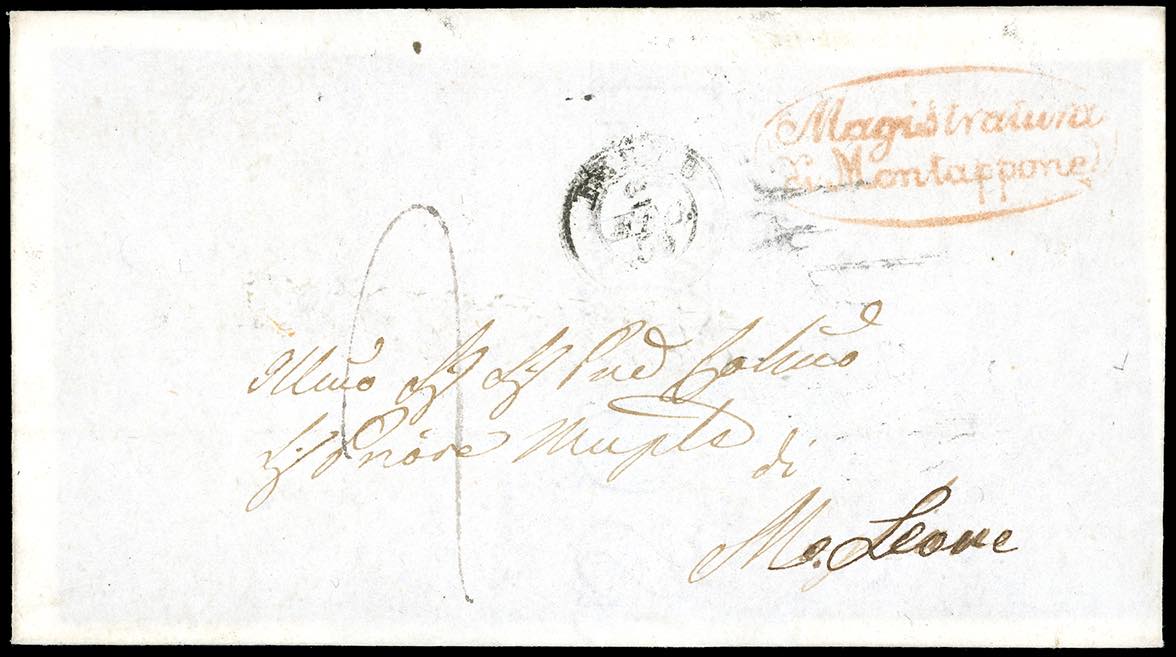 Magistratura
di Montappone
Illmo Sig Sig Pne Colmo
Sig Priore Muple
di
Me. Leone